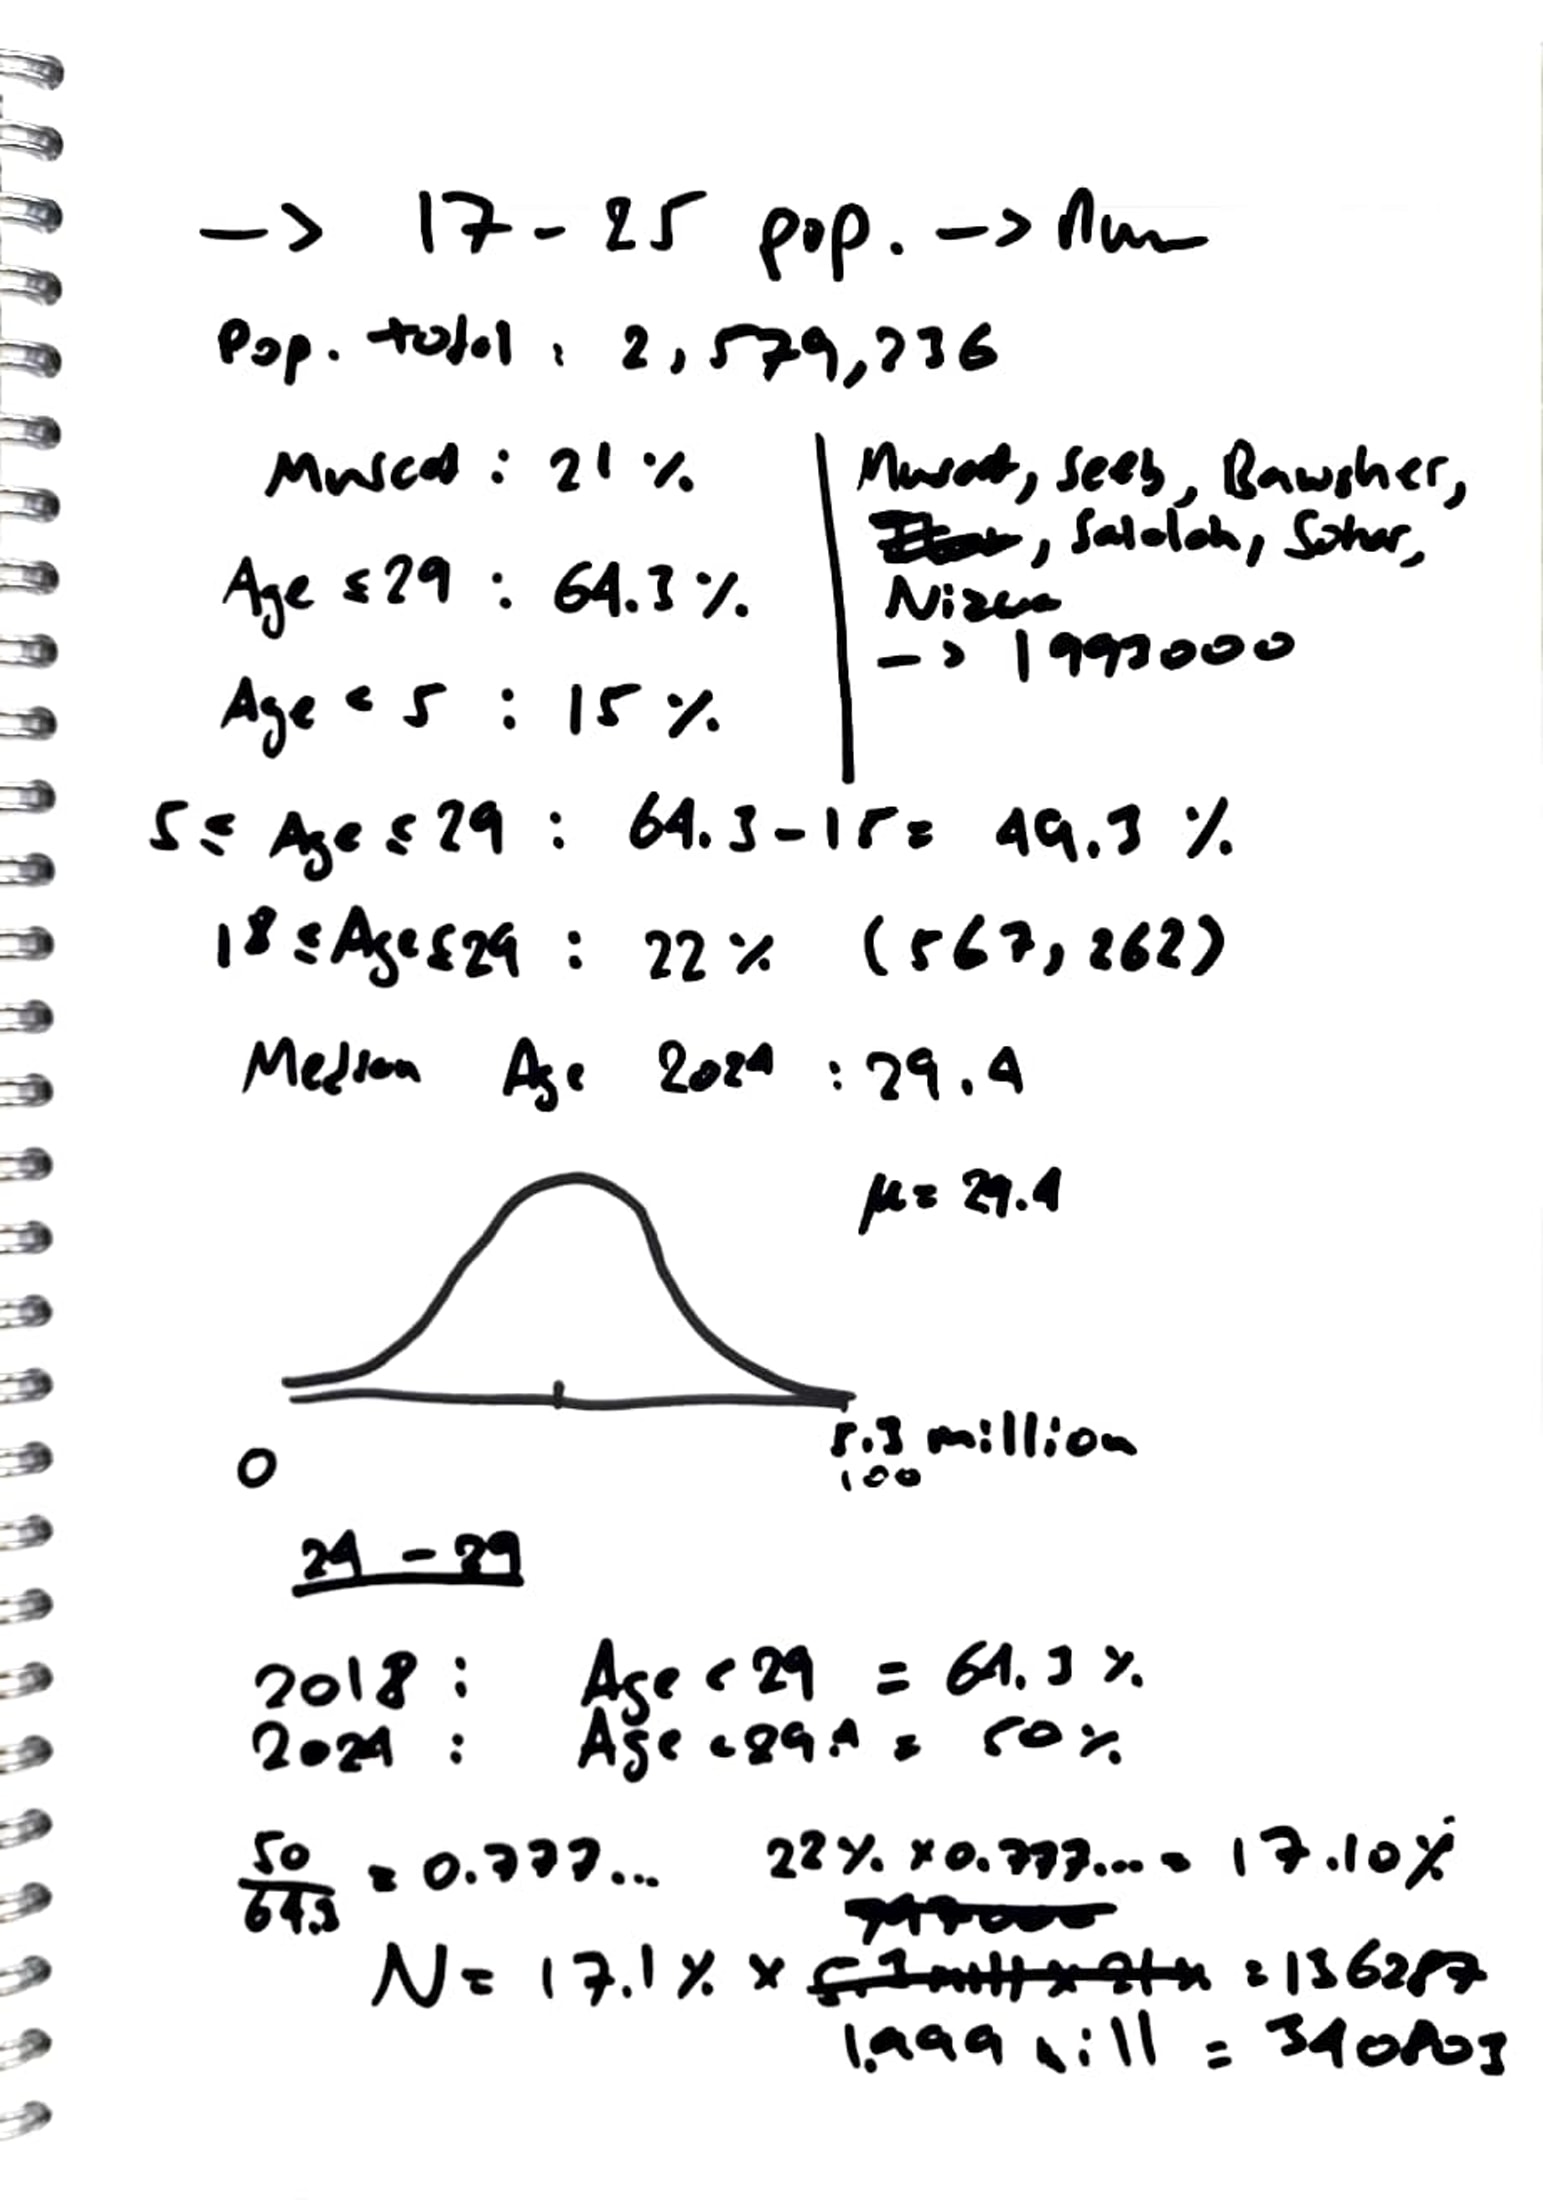 -> 17 - 25 pop. ->
Pop. total : 2,579,236
Muscat : 21 %
Age ≤ 29 : 64.3 %
Age < 5 : 15 %
Muscat, Seeb, Bawsher,
, Salalah, Sohar,
Nizwa
-> 1993000
5 ≤ Age ≤ 29 : 64.3 - 15 = 49.3 %
18 ≤ Age ≤ 29 : 22 % (567,262)
Median Age 2024 : 29.4
μ = 29.4
0
5.3 million
100
24 - 29
2018 : Age < 29 = 64.3 %
2024 : Age < 29.4 = 50 %
50/64.3 = 0.777... 22% x 0.777... = 17.10%
N = 17.1 % x = 136287
1.999 mill = 340803